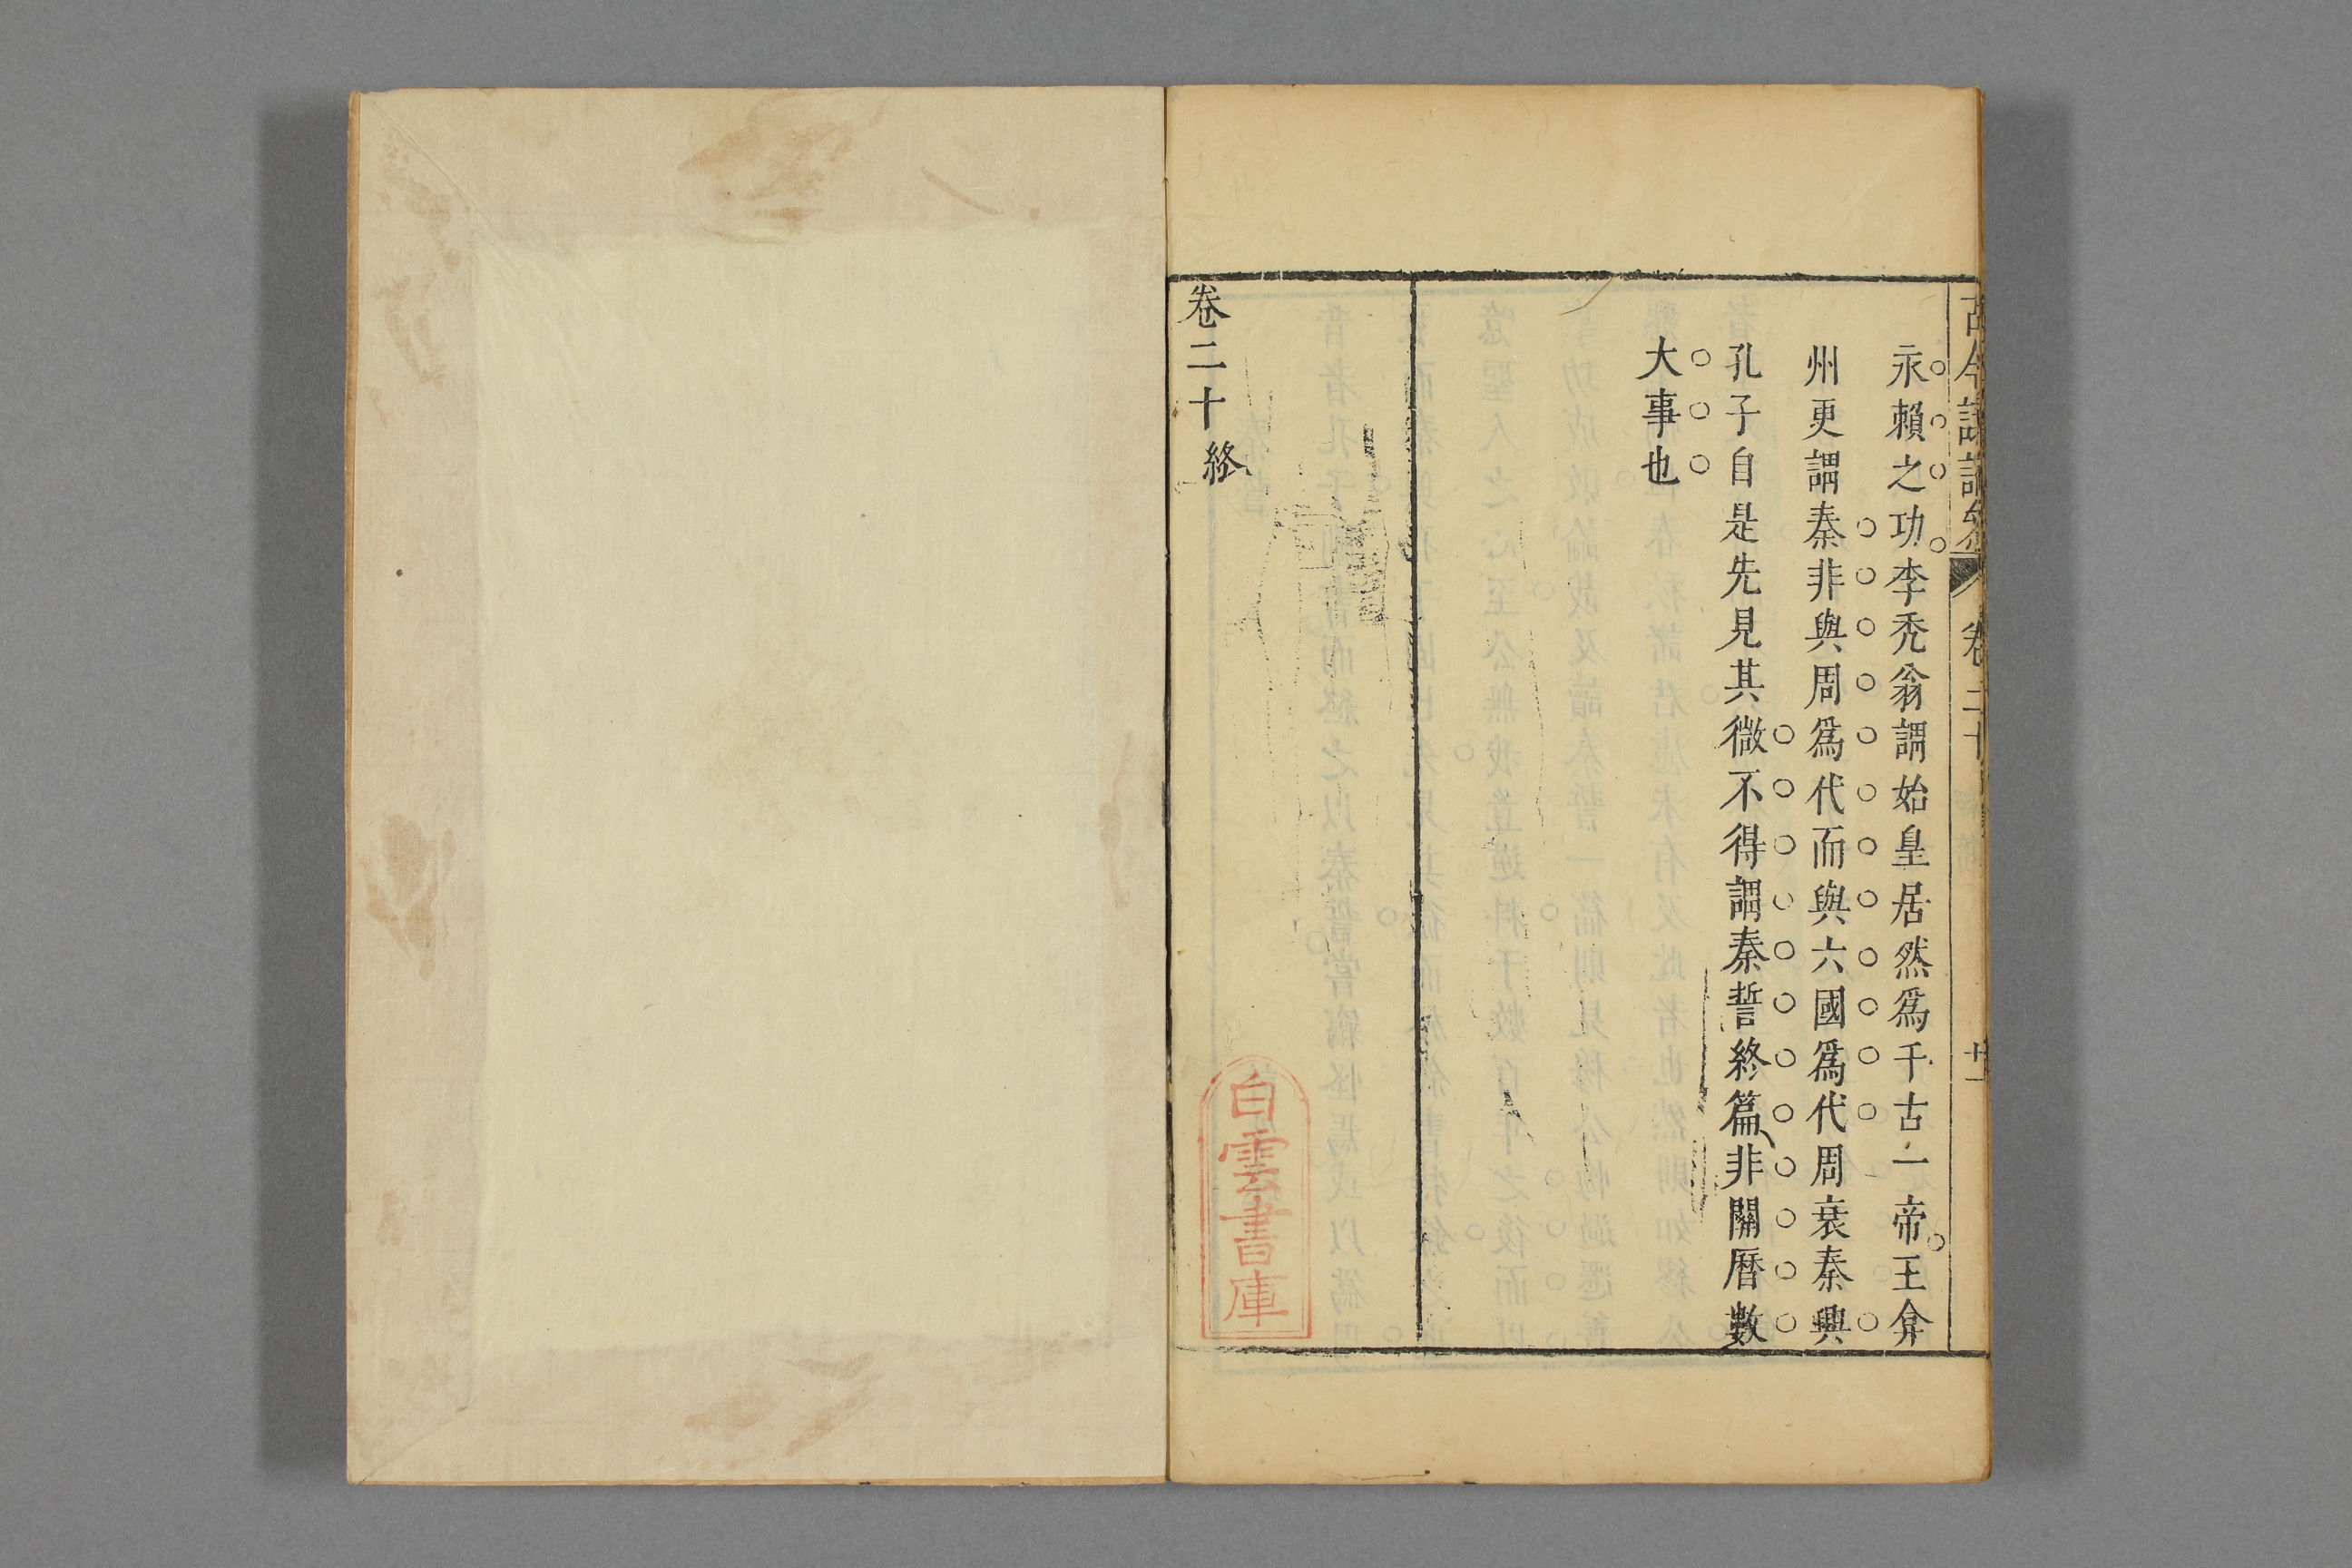 永賴之功李禿翁謂始皇居然爲千古一帝王弇
州更謂秦非與周爲代而與六國爲代周衰秦興
孔子自是先見其微不得謂秦誓終篇非關曆數
大事也
卷二十終
白雲書庫